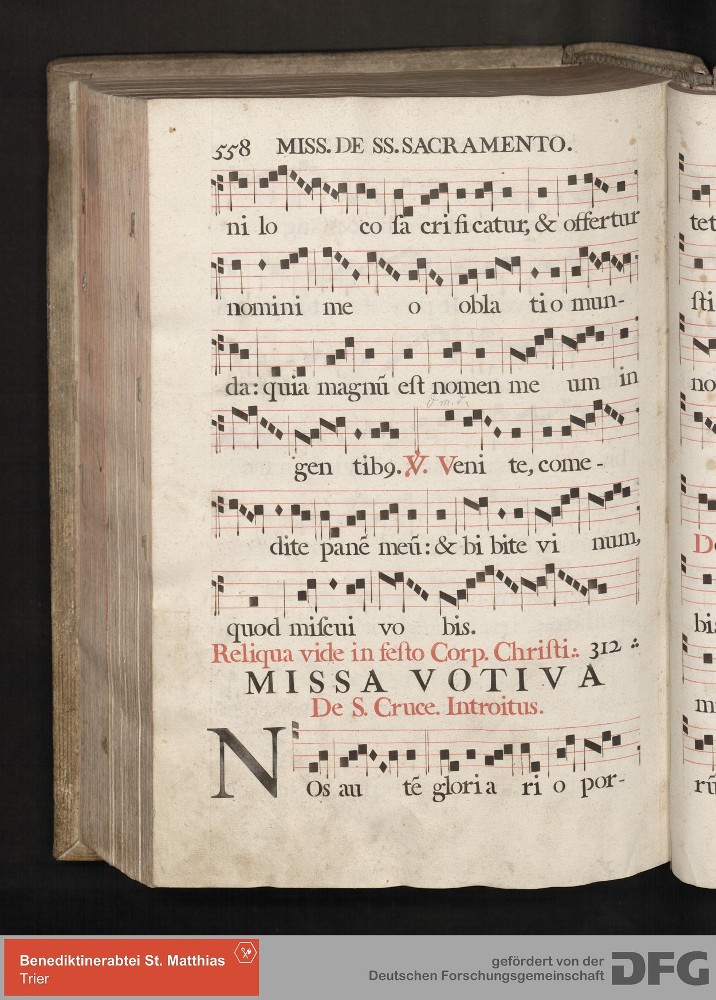 558 MISS. DE SS. SACRAMENTO.
ni lo co ſa cri fi catur, & offertur
nomini me o obla ti o mun-
da: quia magnū eſt nomen me um in
gen tib9. V. Veni te, come-
dite panē meū: & bi bite vi num,
quod miſcui vo bis.
Reliqua vide in feſto Corp. Chriſti:. 312 :.
MISSA VOTIVA
De S. Cruce. Introitus.
NOs au tē glori a ri o por-
tet
ſti
no
De
bi
m
rū
Benediktinerabtei St. Matthias
Trier
gefördert von der
Deutschen Forschungsgemeinschaft
DFG